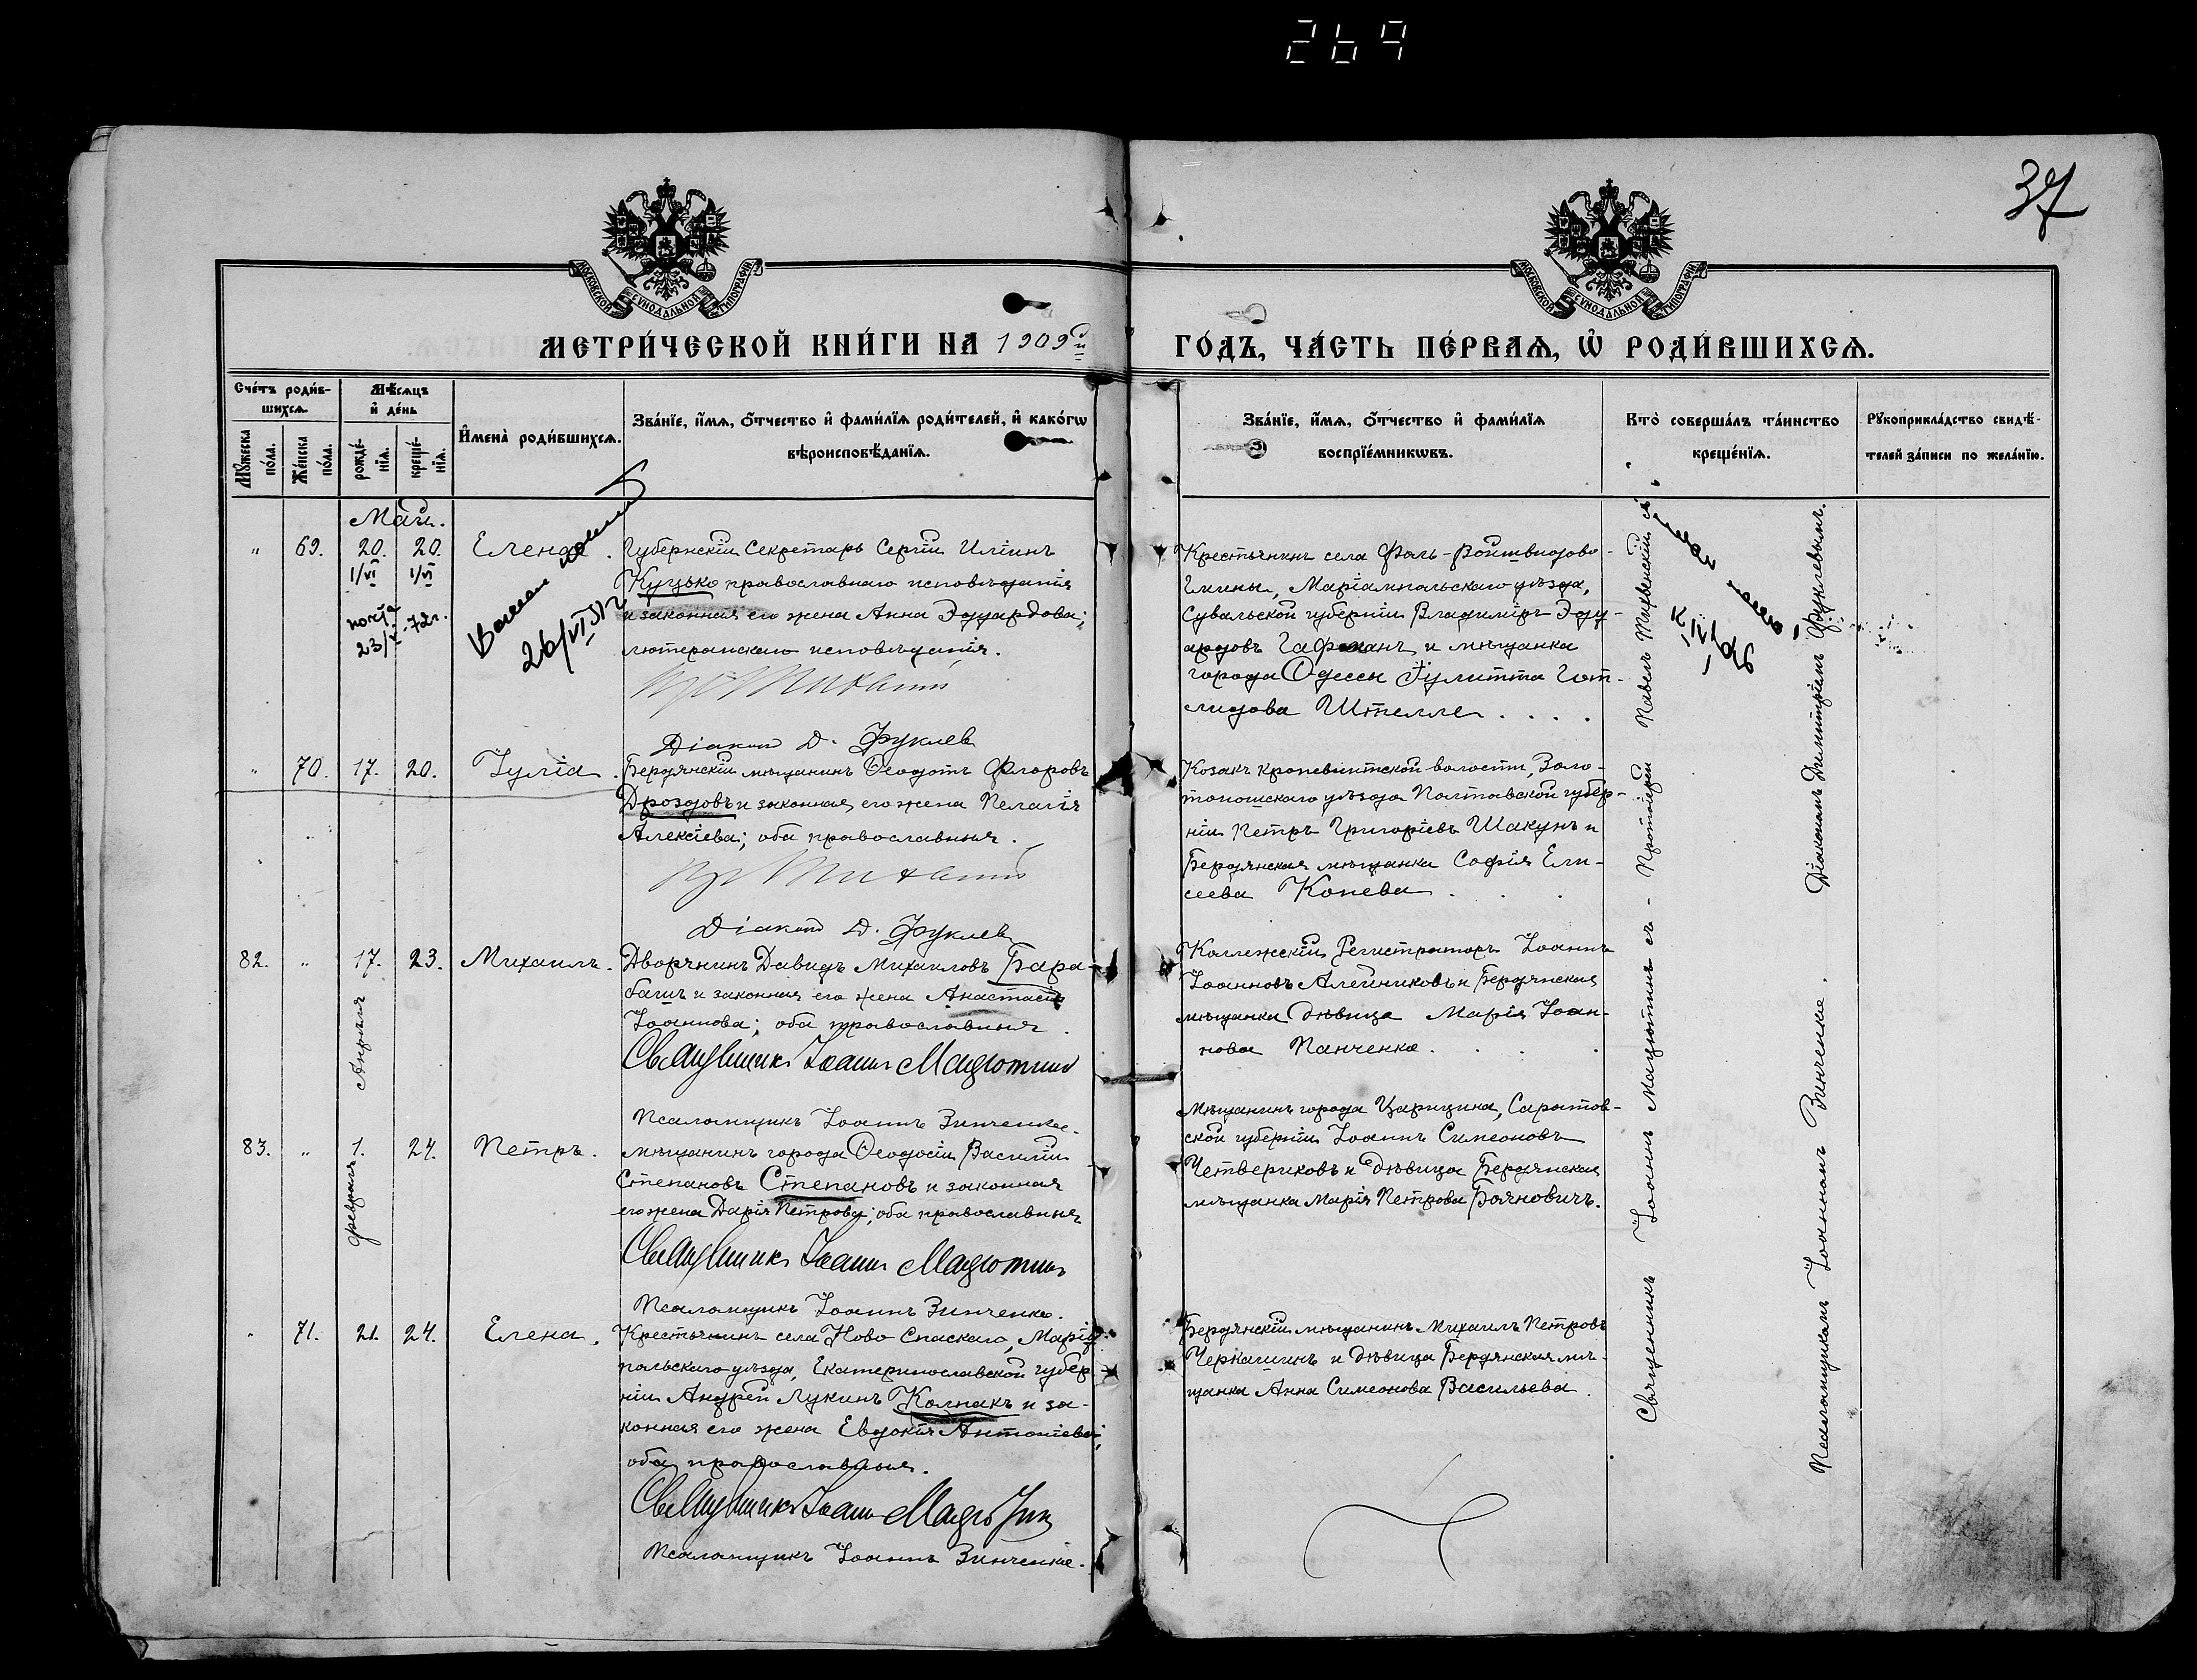 269
37
МОСКОВСКОЙ СѴНОДАЛЬНОЙ ТИПОГРАФІИ
МОСКОВСКОЙ СѴНОДАЛЬНОЙ ТИПОГРАФІИ
МЕТРИ́ЧЕСКОЙ КНИ́ГИ НА 1909й
ГО́ДЪ, ЧА́СТЬ ПЕ́РВАѦ, Ѡ҆ РОДИ́ВШИХСѦ.
Сче́тъ роди́в-
шихсѧ.
Мѣ́сѧцъ
и҆ де́нь
Мꙋ́жеска
по́ла.
Же́нска
по́ла.
рожде́-
нїѧ.
креще́-
нїѧ.
И҆мена̀ роди́вшихсѧ.
Зва́нїе, и҆́мѧ, ѻ҆́тчество и҆ фами́лїѧ роди́телей, и҆ како́гѡ
вѣроисповѣ́данїѧ.
Зва́нїе, и҆́мѧ, ѻ҆́тчество и҆ фами́лїѧ
воспрїе́мникѡвъ.
Кто̀ соверша́лъ та́инство
креще́нїѧ.
Рꙋкоприкла́дство свидѣ́-
телей за́писи по жела́нїю.
Май.
" 69. 20. 20. Елена.
1/VI 1/VI
23/V-72г.
26/VI 31г
Губернскій Секретарь Сергій Иліинъ
Куцько православнаго исповѣданія
и законная его жена Анна Эдуардова;
лютеранскаго исповѣданія.
Діаконъ Д. Фуклев
Крестьянинъ села Фаль-
Гмины, Маріампольскаго уѣзда,
Сувальской губерніи Владиміръ Эду-
ардовъ Гафманъ и мѣщанка
города Одессы Іулитта Гот-
лидова Штелле . . . .
" 70. 17. 20. Іулія.
Бердянскій мѣщанинъ Ѳеодотъ Флоровъ
Дроздовъ и законная его жена Пелагія
Алексіева; оба православные.
Діаконъ Д. Фуклевъ
Козакъ Кропевинтской волости, Золо-
тоношскаго уѣзда Полтавской губер-
ніи Петръ Григоріевъ Шакунъ и
Бердянская мѣщанка Софія Ели-
сеева Конева . . .
82. " 17. 23. Михаилъ.
Апрѣля
Дворянинъ Давидъ Михаиловъ Бара-
башъ и законная его жена Анастасія
Іоаннова; оба православные.
Священникъ Іоаннъ Мацютинъ
Псаломщикъ Іоаннъ Зинченко.
Коллежскій Регистраторъ Іоаннъ
Іоанновъ Алейниковъ и Бердянская
мѣщанка дѣвица Марія Іоан-
нова Панченко . . .
83. " 1. 24. Петръ.
февраля
мѣщанинъ города Ѳеодосіи Василій
Степановъ Степановъ и законная
его жена Дарія Петрова; оба православные
Священникъ Іоаннъ Мацютинъ
Псаломщикъ Іоаннъ Зинченко.
Мѣщанинъ города Царицина, Саратов-
ской губерніи Іоаннъ Симеоновъ
Четвериковъ и дѣвица Бердянская
мѣщанка Марія Петрова Бояновичъ.
" 71. 21. 24. Елена.
Крестьянинъ села Ново Спаскаго, Маріу-
польскаго уѣзда, Екатеринославской губер
ніи Андрей Лукинъ Колпакъ и за-
конная его жена Евдокія Антоніева;
оба православные.
Священникъ Іоаннъ Мацютинъ
Псаломщикъ Іоаннъ Зинченко.
Бердянскій мѣщанинъ Михаилъ Петровъ
Черкашинъ и дѣвица Бердянская мѣ-
щанка Анна Симеонова Васильева.
Священникъ Іоаннъ Мацютинъ съ - Протоіерей Павелъ Тихвинскій съ
Псаломщикомъ Іоанномъ Зинченко. Діакономъ Димитріемъ Фуклевымъ.